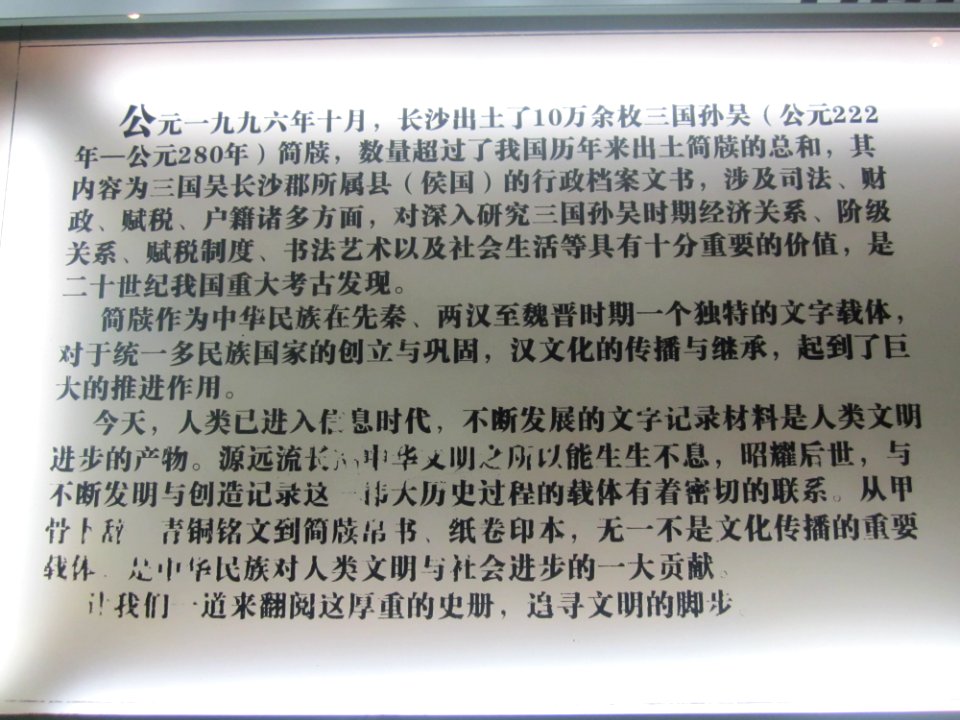 公元一九九六年十月，长沙出土了10万余枚三国孙吴（公元222
年—公元280年）简牍，数量超过了我国历年来出土简牍的总和，其
内容为三国吴长沙郡所属县（侯国）的行政档案文书，涉及司法、财
政、赋税、户籍诸多方面，对深入研究三国孙吴时期经济关系、阶级
关系、赋税制度、书法艺术以及社会生活等具有十分重要的价值，是
二十世纪我国重大考古发现。
简牍作为中华民族在先秦、两汉至魏晋时期一个独特的文字载体，
对于统一多民族国家的创立与巩固，汉文化的传播与继承，起到了巨
大的推进作用。
今天，人类已进入信息时代，不断发展的文字记录材料是人类文明
进步的产物。源远流长的中华文明之所以能生生不息，昭耀后世，与
不断发明与创造记录这一伟大历史过程的载体有着密切的联系。从甲
骨卜辞、青铜铭文到简牍帛书、纸卷印本，无一不是文化传播的重要
载体，是中华民族对人类文明与社会进步的一大贡献。
让我们一道来翻阅这厚重的史册，追寻文明的脚步。